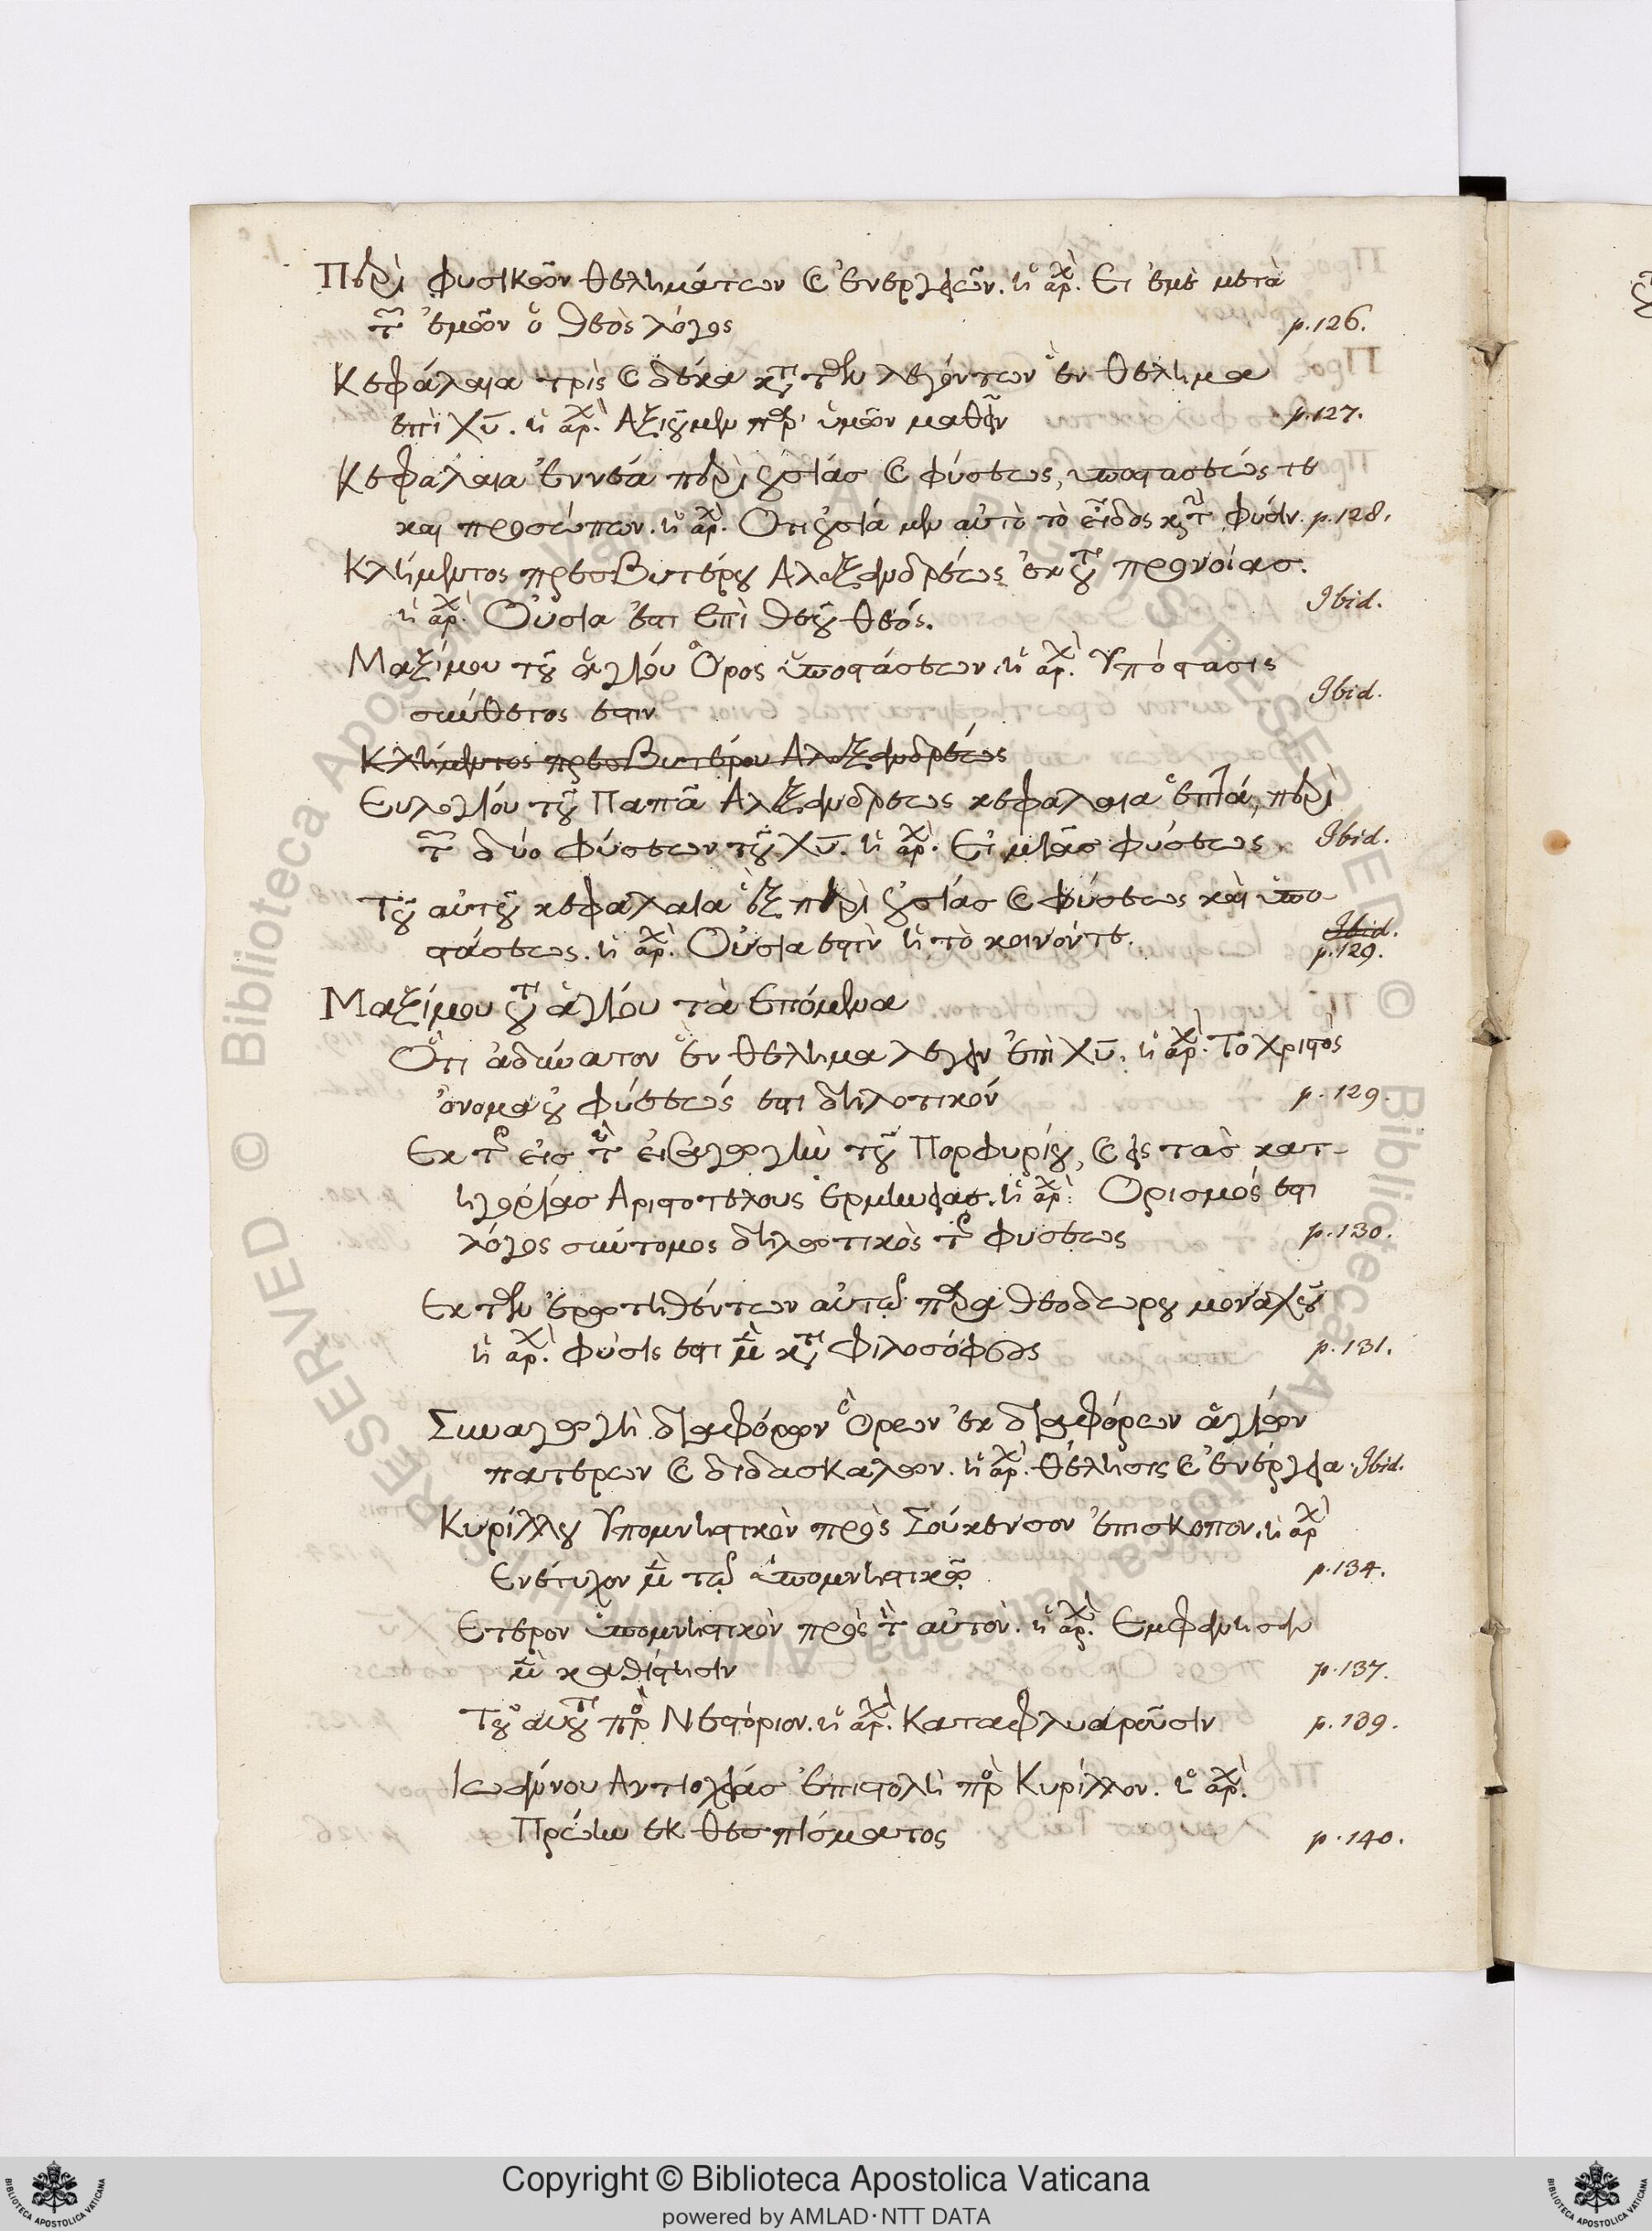 Περὶ φυσικῶν θελημάτων καὶ ἐνεργειῶν. ἡ ἀρχὴ. Ει ἐμὲ μετὰ
τῶν ἐμῶν ὁ θεὸς λόγος p.126.
Κεφάλαια τρὶς καὶ δέκα κατὰ τῶν λεγόντων ἓν θέλημα
ἐπὶ Χυ. ἡ ἀρχὴ. Αξιοῦμεν παρ' ὑμῶν μαθεῖν p.127.
Κεφάλαια ἐννέα περὶ οὐσίας καὶ φύσεως, ὑποστασεώς τε
και προσώπων. ἡ ἀρχὴ. Οτι οὐσία μεν αὐτὸ τὸ εἶδος καὶ τὴν φύσιν. p.128.
Κλήμεντος πρεσβυτέρου Αλεξανδρέως ἐκ τοῦ προνοίας.
ἡ ἀρχὴ. Οὐσία ἐστι ἐπὶ θεοῦ θεός. Ibid.
Μαξίμου τοῦ ἁγίου Ὅρος ὑποστάσεων. ἡ ἀρχὴ. Υπόστασις
σύνθετος εστιν Ibid.
Κλήμεντος πρεσβυτέρου Αλεξανδρέως
Ευλογίου τοῦ Παπᾶ Αλεξανδρεως κεφαλαια ἑπτά, περὶ
τῶν δύο φύσεων τοῦ Χυ. ἡ ἀρχὴ. Εἰ μιᾶς φύσεως Ibid.
Τοῦ αὐτοῦ κεφαλαια ἓξ περὶ οὐσίας καὶ φύσεως καὶ ὑπο-
στάσεως. ἡ ἀρχὴ. Οὐσία εστὶν ἡ τὸ κοινόν τε. Ibid.
p.129.
Μαξίμου τοῦ ἁγίου τὰ ἑπόμενα
Ὅτι ἀδύνατον ἓν θέλημα λέγειν ἐπὶ Χυ. ἡ ἀρχὴ. Τὸ Χριστὸς
ὄνομα οὐ φύσεώς εστι δηλοτικόν p.129.
Εκ τῶν εἰς τὴν εἰσαγωγὴν τοῦ Πορφυρίου, καὶ εἰς τὰς κατ-
ηγορίας Αριστοτέλους ἑρμηνείας. ἡ ἀρχὴ. Ορισμός εστι
λόγος σύντομος δηλωτικὸς τῆς φυσεως p.130.
Εκ τῶν ἐρωτηθέντων αὐτῷ παρὰ θεοδωρου μοναχοῦ
ἡ ἀρχὴ. φύσις εστι μὲν κατὰ φιλοσόφους p.131.
Συναγωγὴ διαφόρων Ὅρων ἐκ διαφόρων ἁγίων
πατερων καὶ διδασκάλων. ἡ ἀρχὴ. Θέλησις καὶ ἐνέργεια. Ibid.
Κυρίλλου Υπομνηστικὸν πρὸς Σούκενσον ἐπισκοπον. ἡ ἀρχὴ
Ενέτυχον μὲν τῷ ὑπομνηστικῷ p.134.
Ετερον ὑπομνηστικὸν πρὸς τὸν αὐτὸν. ἡ ἀρχὴ. Εμφανήσειν
μὲν καθίστησιν p.137.
Τοῦ αυτοῦ πρὸς Νεστόριον. ἡ ἀρχὴ. Καταφλυαροῦσιν p.139.
Ιωάννου Αντιοχείας ἐπιστολὴ πρὸς Κυρίλλον. ἡ ἀρχὴ.
Πρώην εκ θεσπίσματος p.140.
Copyright © Biblioteca Apostolica Vaticana
powered by AMLAD·NTT DATA